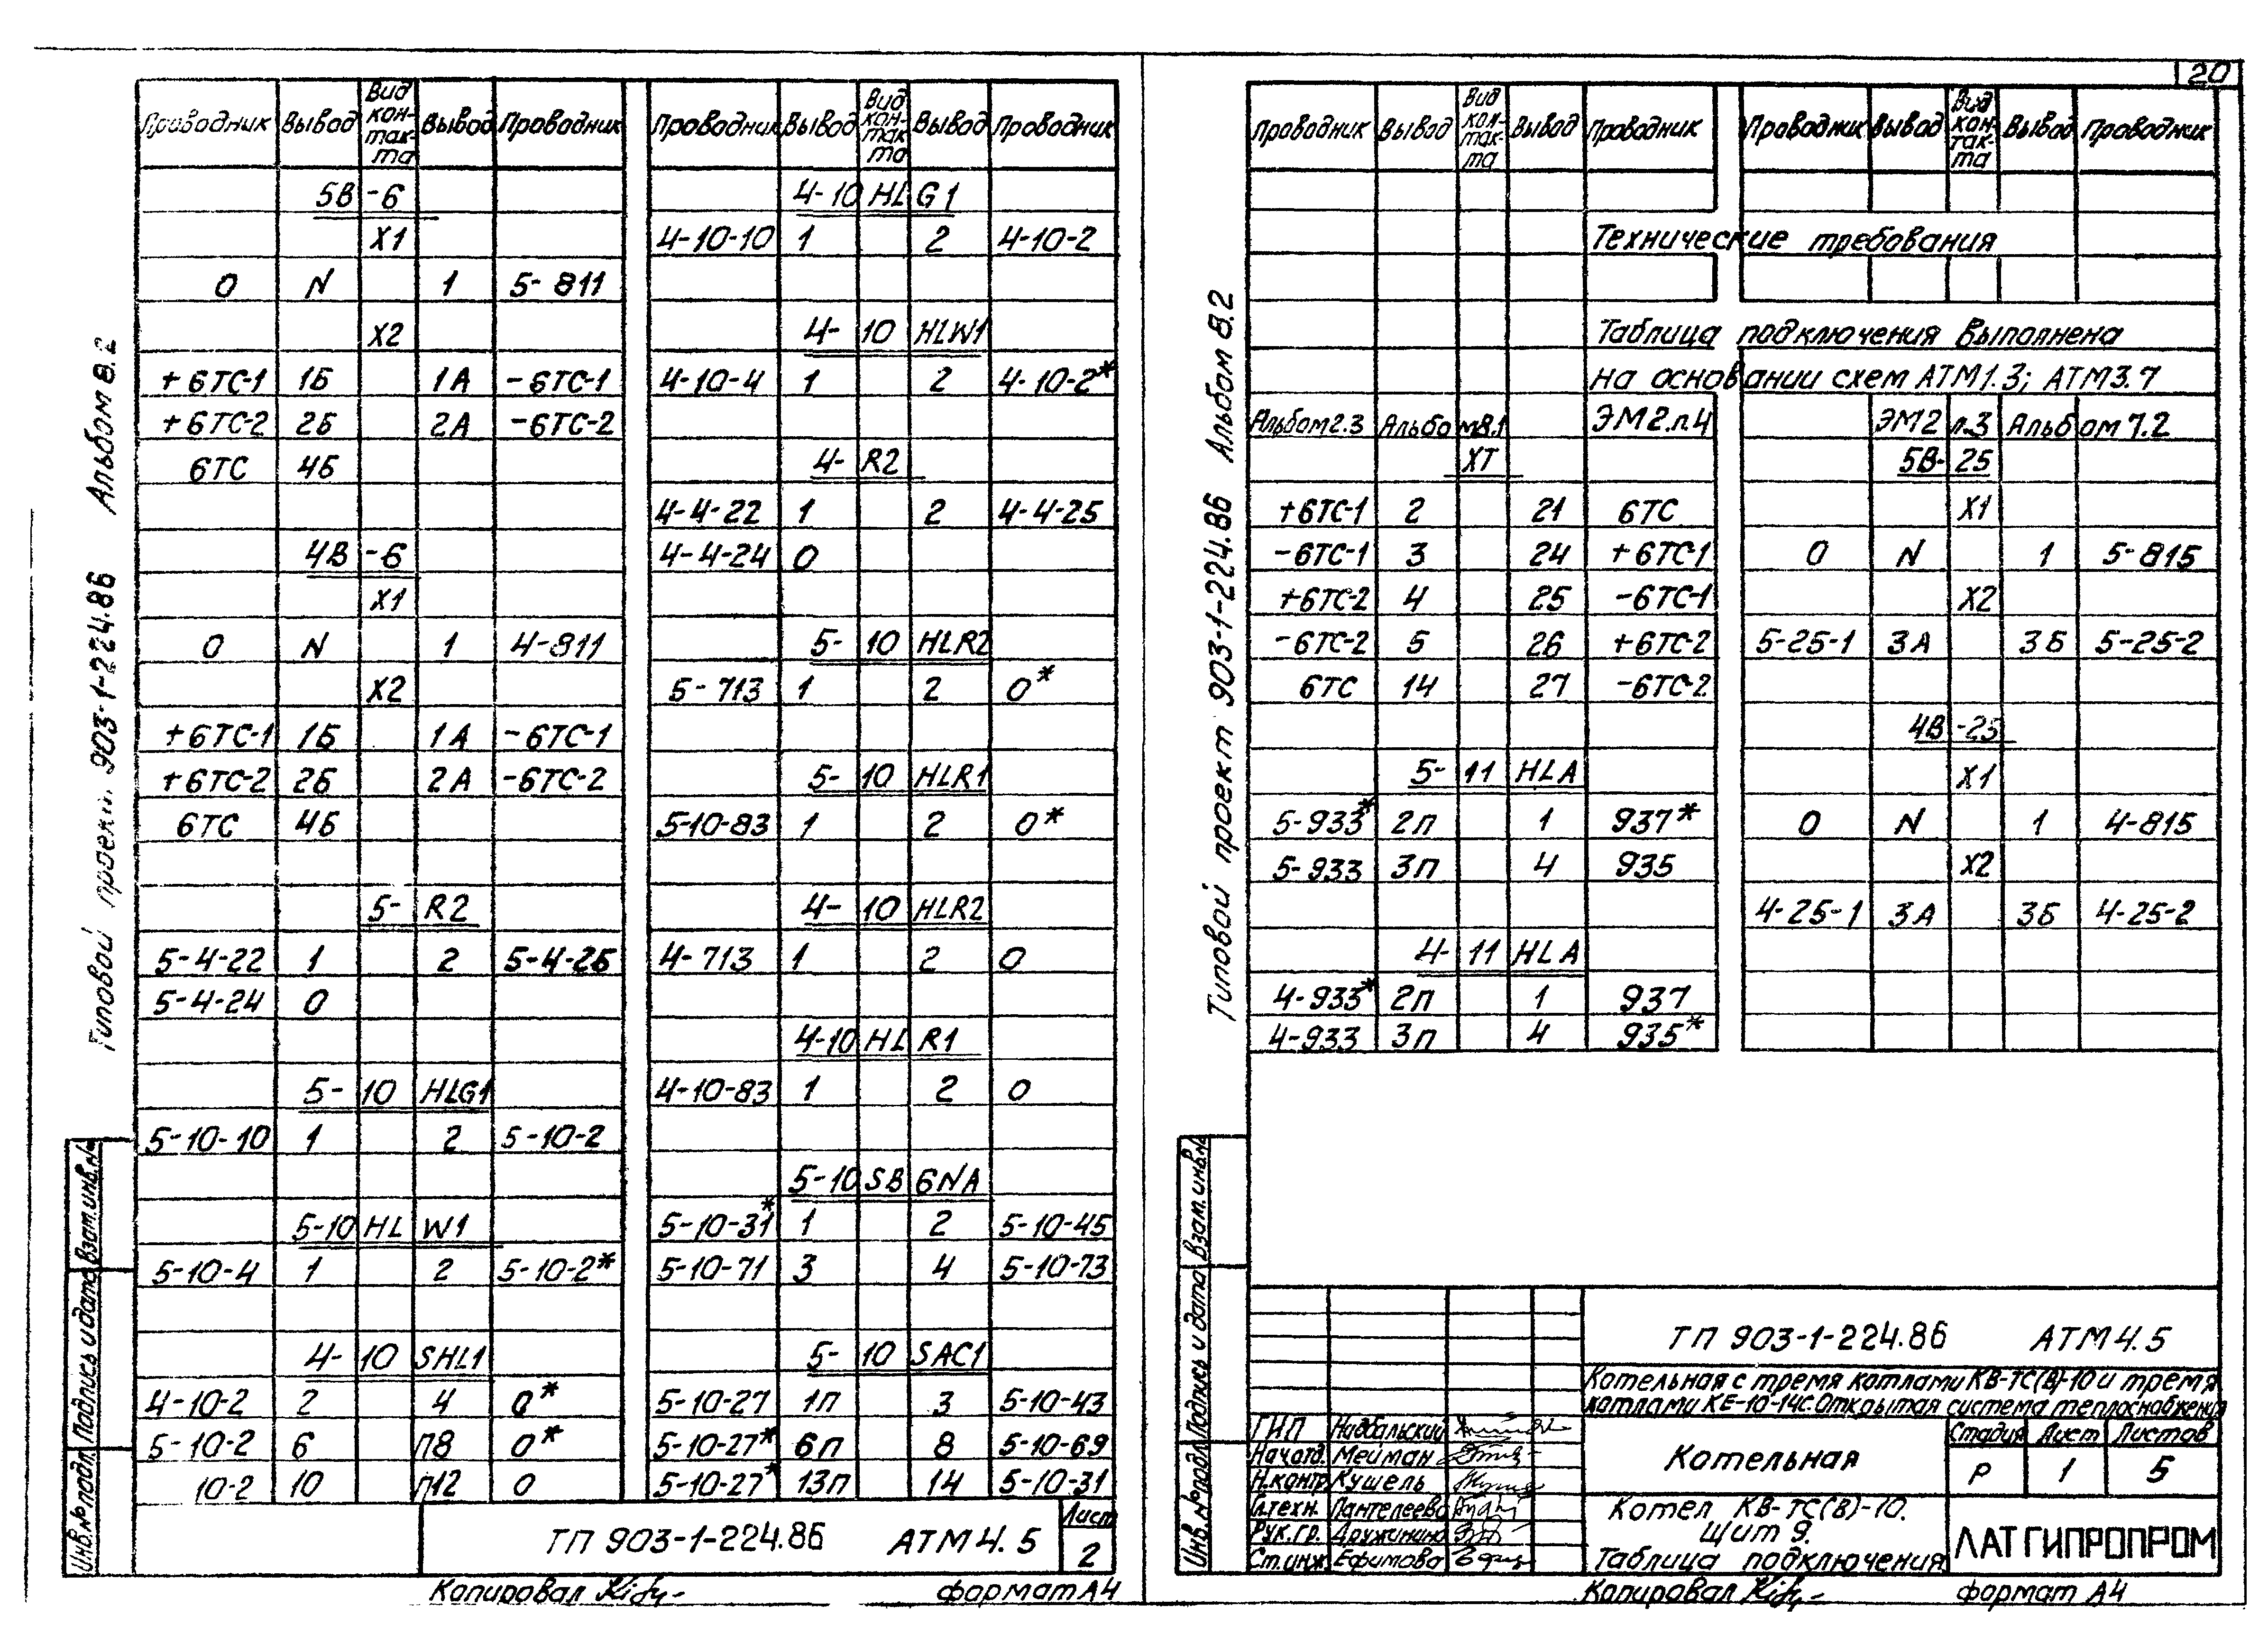 20
Проводник Вывод Вид кон-так-та Вывод Проводник
5В-6
X1
0 N 1 5-811
X2
+6ТС-1 1Б 1А -6ТС-1
+6ТС-2 2Б 2А -6ТС-2
6ТС 4Б
4В-6
X1
0 N 1 4-811
X2
+6ТС-1 1Б 1А -6ТС-1
+6ТС-2 2Б 2А -6ТС-2
6ТС 4Б
5-R2
5-4-22 1 2 5-4-25
5-4-24 0
5-10HLG1
5-10-10 1 2 5-10-2
5-10HLW1
5-10-4 1 2 5-10-2*
4-10SHL1
4-10-2 2 4 0*
5-10-2 6 П8 0*
10-2 10 П12 0
Проводник Вывод Вид кон-так-та Вывод Проводник
4-10HLG1
4-10-10 1 2 4-10-2
4-10HLW1
4-10-4 1 2 4-10-2*
4-R2
4-4-22 1 2 4-4-25
4-4-24 0
5-10HLR2
5-713 1 2 0*
5-10HLR1
5-10-83 1 2 0*
4-10HLR2
4-713 1 2 0
4-10HLR1
4-10-83 1 2 0
5-10SB6NA
5-10-31* 1 2 5-10-45
5-10-71 3 4 5-10-73
5-10SAC1
5-10-27 1п 3 5-10-43
5-10-27* 6п 8 5-10-69
5-10-27* 13п 14 5-10-31
Типовой проект 903-1-224.86 Альбом 8.2
Инв.№ подл. Подпись и дата Взам.инв.№
ТП 903-1-224.86 АТМ4.5
Лист
2
Копировал
формат А4
Проводник Вывод Вид кон-так-та Вывод Проводник
Проводник Вывод Вид кон-так-та Вывод Проводник
Технические требования
Таблица подключения выполнена
на основании схем АТМ1.3; АТМ3.7
Альбом 2.3 Альбом 8.1 ЭМ2.л.4 ЭМ2 л.3 Альбом 7.2
XT
+6ТС-1 2 21 6ТС
-6ТС-1 3 24 +6ТС-1
+6ТС-2 4 25 -6ТС-1
-6ТС-2 5 26 +6ТС-2
6ТС 14 27 -6ТС-2
5-11HLA
5-933* 2п 1 937*
5-933 3п 4 935
4-11HLA
4-933* 2п 1 937
4-933 3п 4 935*
5В-25
X1
0 N 1 5-815
X2
5-25-1 3А 3Б 5-25-2
4В-25
X1
0 N 1 4-815
X2
4-25-1 3А 3Б 4-25-2
Типовой проект 903-1-224.86 Альбом 8.2
Инв.№ подл. Подпись и дата Взам.инв.№
ТП 903-1-224.86 АТМ4.5
Котельная с тремя котлами КВ-ТС(В)-10 и тремя
котлами КЕ-10-14С. Открытая система теплоснабжения
ГИП Надбальский
Нач.отд. Мейман
Н.контр. Кушель
Гл.техн. Пантелеева
Рук.гр. Дружинина
Ст.инж. Ефимова
Котельная
Стадия Лист Листов
Р 1 5
Котел КВ-ТС(В)-10.
Щит 9.
Таблица подключения
ЛАТГИПРОПРОМ
Копировал
формат А4